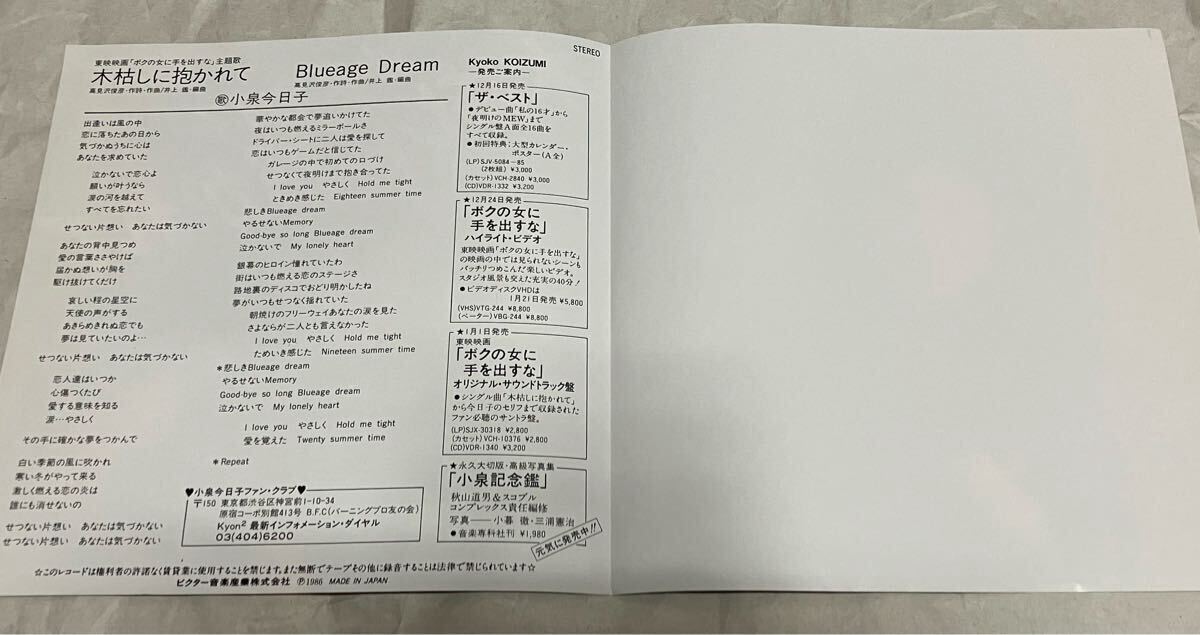 STEREO
東映映画「ボクの女に手を出すな」主題歌
木枯しに抱かれて
高見沢俊彦・作詩・作曲/井上 鑑・編曲
Blueage Dream
高見沢俊彦・作詩・作曲/井上 鑑・編曲
歌小泉今日子
出逢いは風の中
恋に落ちたあの日から
気づかぬうちに心は
あなたを求めていた
泣かないで恋心よ
願いが叶うなら
涙の河を越えて
すべてを忘れたい
せつない片想い あなたは気づかない
あなたの背中見つめ
愛の言葉ささやけば
届かぬ想いが胸を
駆け抜けてくだけ
哀しい程の星空に
天使の声がする
あきらめきれぬ恋でも
夢は見ていたいのよ…
せつない片想い あなたは気づかない
恋人達はいつか
心傷つくたび
愛する意味を知る
涙…やさしく
その手に確かな夢をつかんで
白い季節の風に吹かれ
寒い冬がやって来る
激しく燃える恋の炎は
誰にも消せないの
せつない片想い あなたは気づかない
せつない片想い あなたは気づかない
華やかな都会で夢追いかけてた
夜はいつも燃えるミラーボールさ
ドライバー・シートに二人は愛を探して
恋はいつもゲームだと信じてた
ガレージの中で初めての口づけ
せつなくて夜明けまで抱き合ってた
I love you やさしく Hold me tight
ときめき感じた Eighteen summer time
悲しきBlueage dream
やるせないMemory
Good-bye so long Blueage dream
泣かないで My lonely heart
銀幕のヒロイン憧れていたわ
街はいつも燃える恋のステージさ
路地裏のディスコでおどり明かしたね
夢がいつもせつなく揺れていた
朝焼けのフリーウェイあなたの涙を見た
さよならが二人とも言えなかった
I love you やさしく Hold me tight
ためいき感じた Nineteen summer time
*悲しきBlueage dream
やるせないMemory
Good-bye so long Blueage dream
泣かないで My lonely heart
I love you やさしく Hold me tight
愛を覚えた Twenty summer time
*Repeat
♥小泉今日子ファン・クラブ♥
〒150 東京都渋谷区神宮前1-10-34
原宿コーポ別館413号 B.F.C(バーニングプロ友の会)
Kyon² 最新インフォメーション・ダイヤル
03(404)6200
Kyoko KOIZUMI
―発売ご案内―
★12月16日発売
「ザ・ベスト」
●デビュー曲「私の16才」から
「夜明けのMEW」まで
シングル盤A面全16曲を
すべて収録。
●初回特典:大型カレンダー・
ポスター(A全)
(LP)SJV-5084―85
(2枚組) ¥3,000
(カセット)VCH-2840 ¥3,000
(CD)VDR-1332 ¥3,200
★12月24日発売
「ボクの女に
手を出すな」
ハイライト・ビデオ
東映映画「ボクの女に手を出すな」
の映画の中では見られないシーンも
バッチリつめこんだ楽しいビデオ。
スタジオ風景も交えた充実の40分!
●ビデオディスクVHDは
1月21日発売 ¥5,800
(VHS)VTG-244 ¥8,800
(ベーター)VBG-244 ¥8,800
★1月1日発売
東映映画
「ボクの女に
手を出すな」
オリジナル・サウンドトラック盤
●シングル曲「木枯しに抱かれて」
から今日子のセリフまで収録された
ファン必聴のサントラ盤。
(LP)SJX-30318 ¥2,800
(カセット)VCH-10376 ¥2,800
(CD)VDR-1340 ¥3,200
★永久大切版・高級写真集
「小泉記念鑑」
秋山道男&スコブル
コンプレックス責任編修
写真――小暮 徹・三浦憲治
●音楽専科社刊 ¥1,980
元気に発売中!!
☆このレコードは権利者の許諾なく賃貸業に使用することを禁じます。また無断でテープその他に録音することは法律で禁じられています☆
ビクター音楽産業株式会社 ℗1986 MADE IN JAPAN